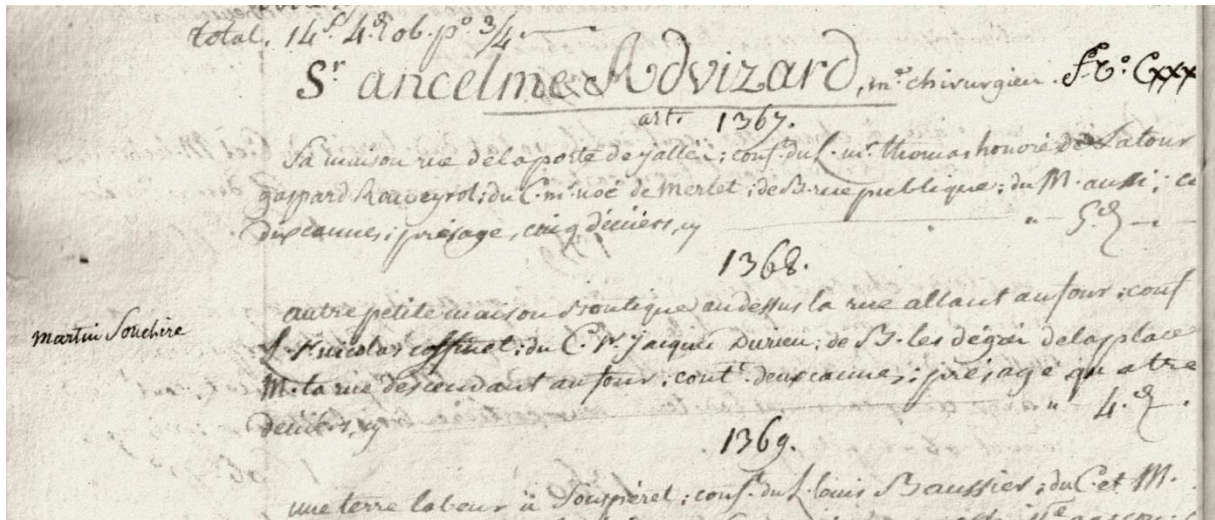 total, 14ſ. 4d ob. po. 3/4.
Sr ancelme Advizard, me. chirurgien. fo. ro. Cxxx
art. 1367.
Sa maison rue de la porte de jallei; conf. du L. mr. thomas honoré de Latour
gaspard Rouveyrol; du C. mr. noé de merlet; de B. rue publique; du M. aussi;
dix cannes; présage, cinq déniérs, " 5d
1368.
autre petite maison Boutique au dessus la rue allant au four; conf
L. Sr. nicolas coffinet; du C. Sr. jacques Durieu; de B. les dégrés de la place
martin Souchire
M. la rue descendant au four; cont. deux cannes; présage quatre
déniérs, " 4.d.
1369.
une terre labour à Souspieret; conf. du L. louis Baussier; du C. et M.